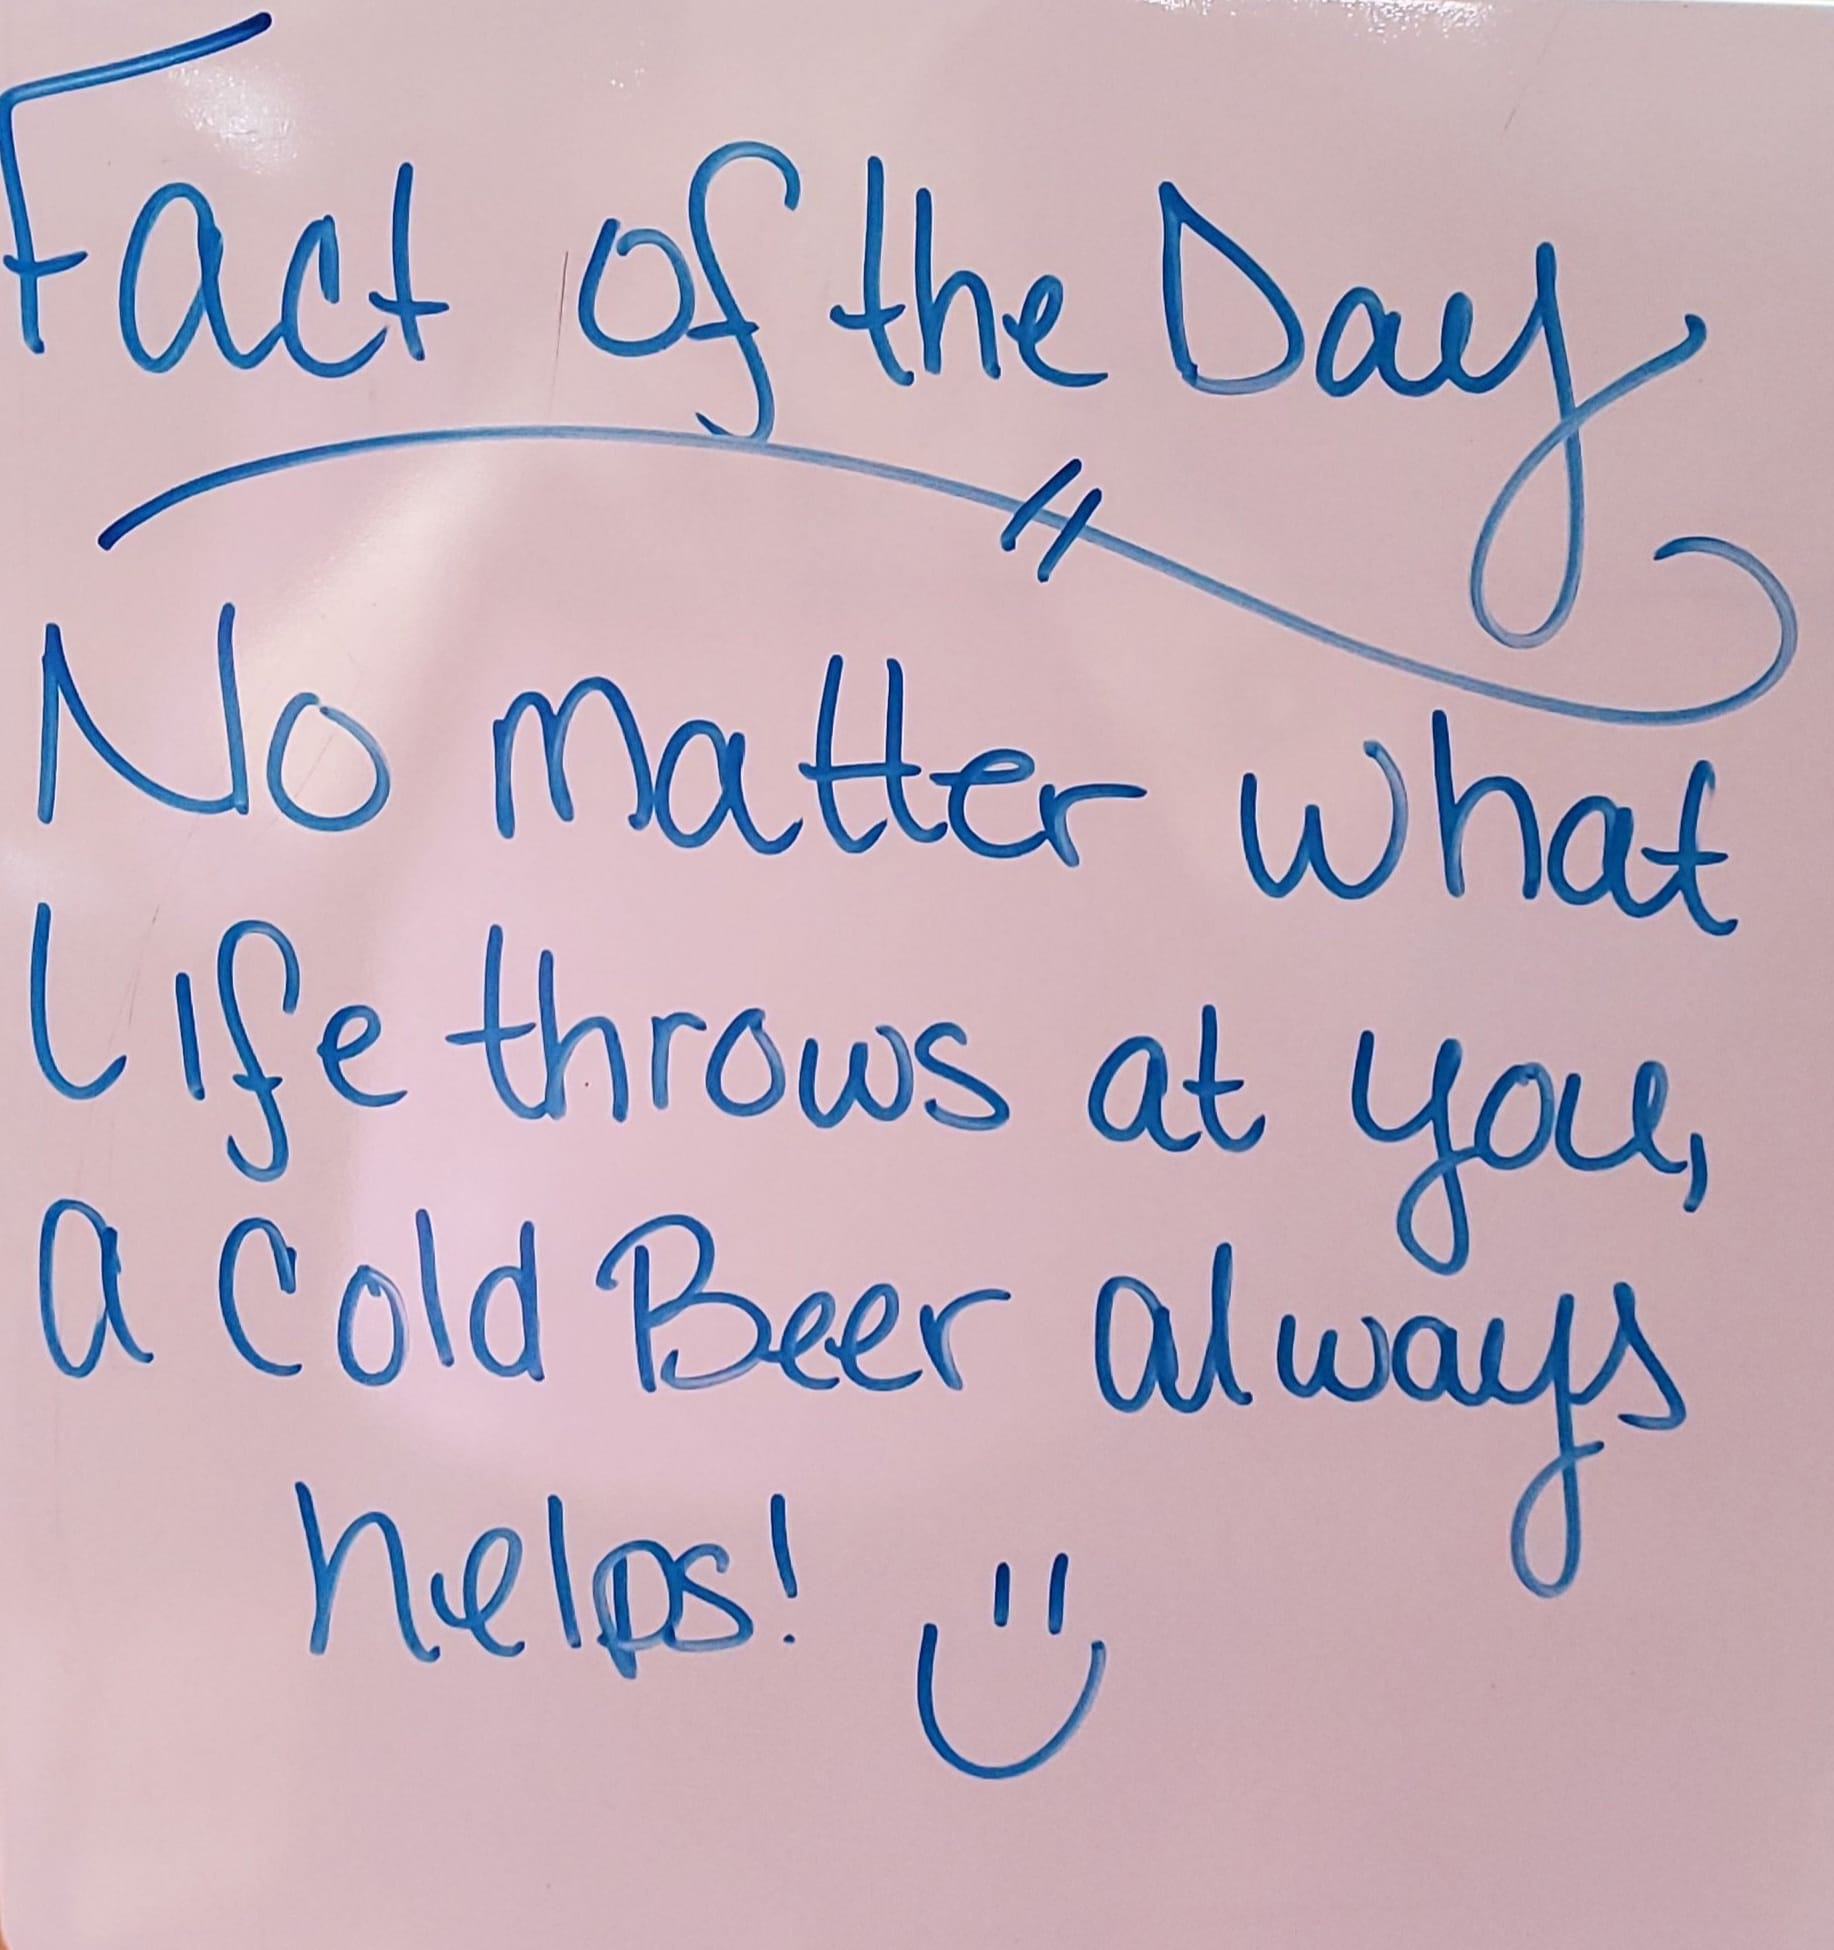 Fact of the Day
No matter what
Life throws at you,
a cold Beer always
helps!